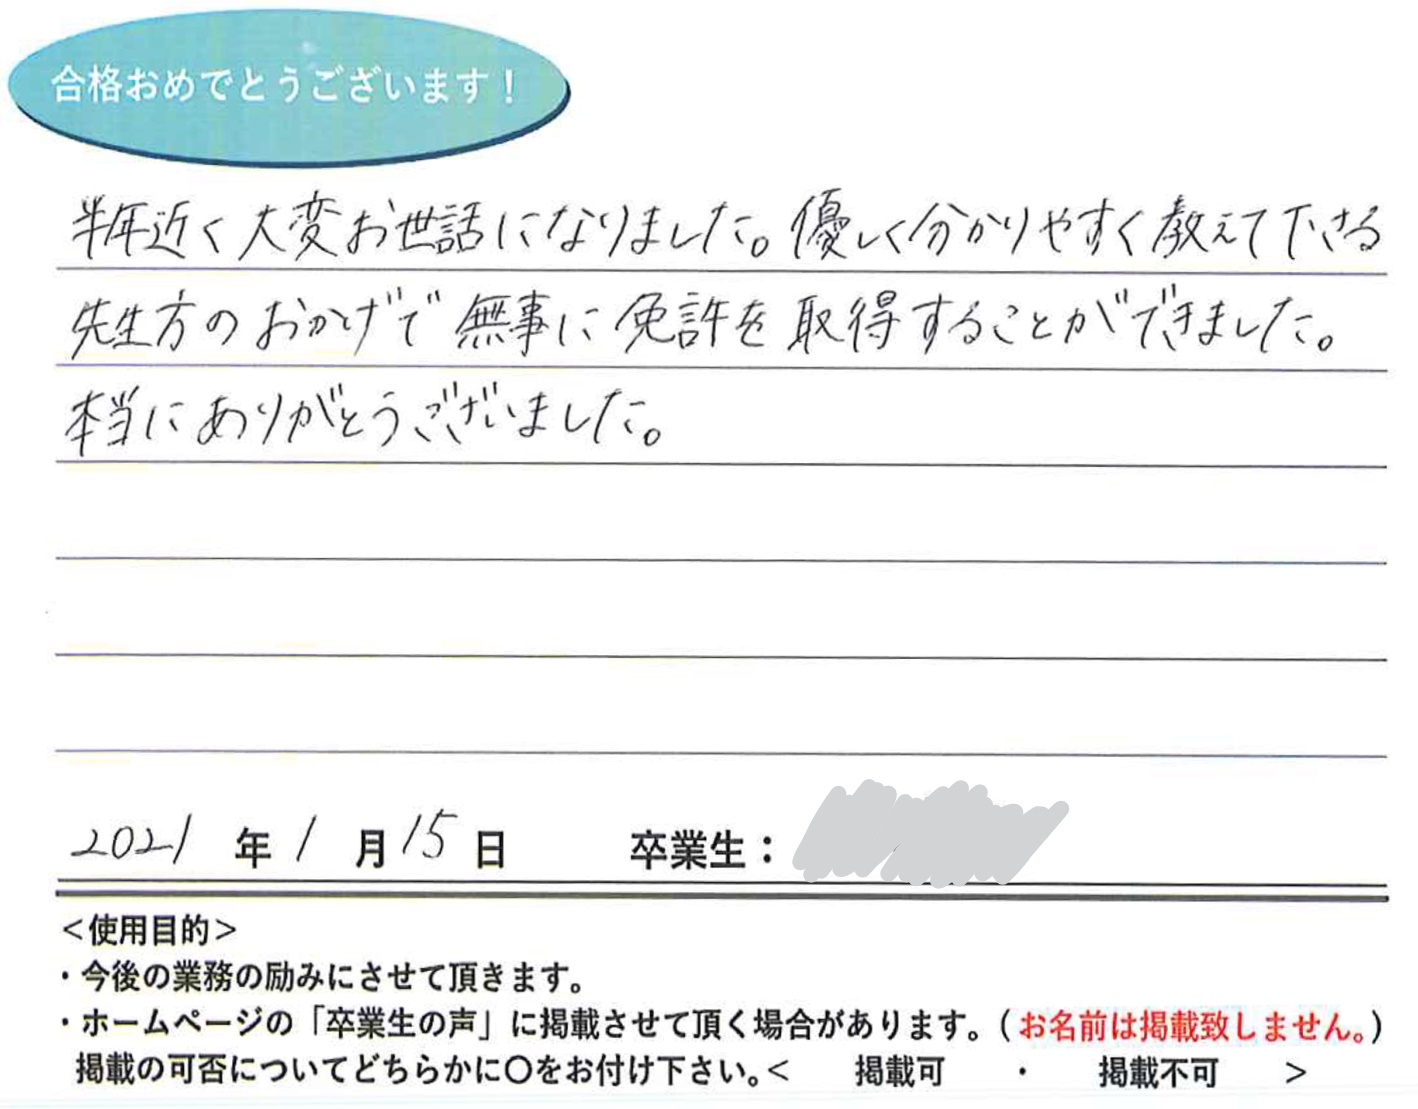 合格おめでとうございます！
半年近く大変お世話になりました。優しく分かりやすく教えて下さる
先生方のおかげで無事に免許を取得することができました。
本当にありがとうございました。
2021 年 1 月 15 日 卒業生：
＜使用目的＞
・今後の業務の励みにさせて頂きます。
・ホームページの「卒業生の声」に掲載させて頂く場合があります。（お名前は掲載致しません。）
掲載の可否についてどちらかに〇をお付け下さい。＜ 掲載可 ・ 掲載不可 ＞